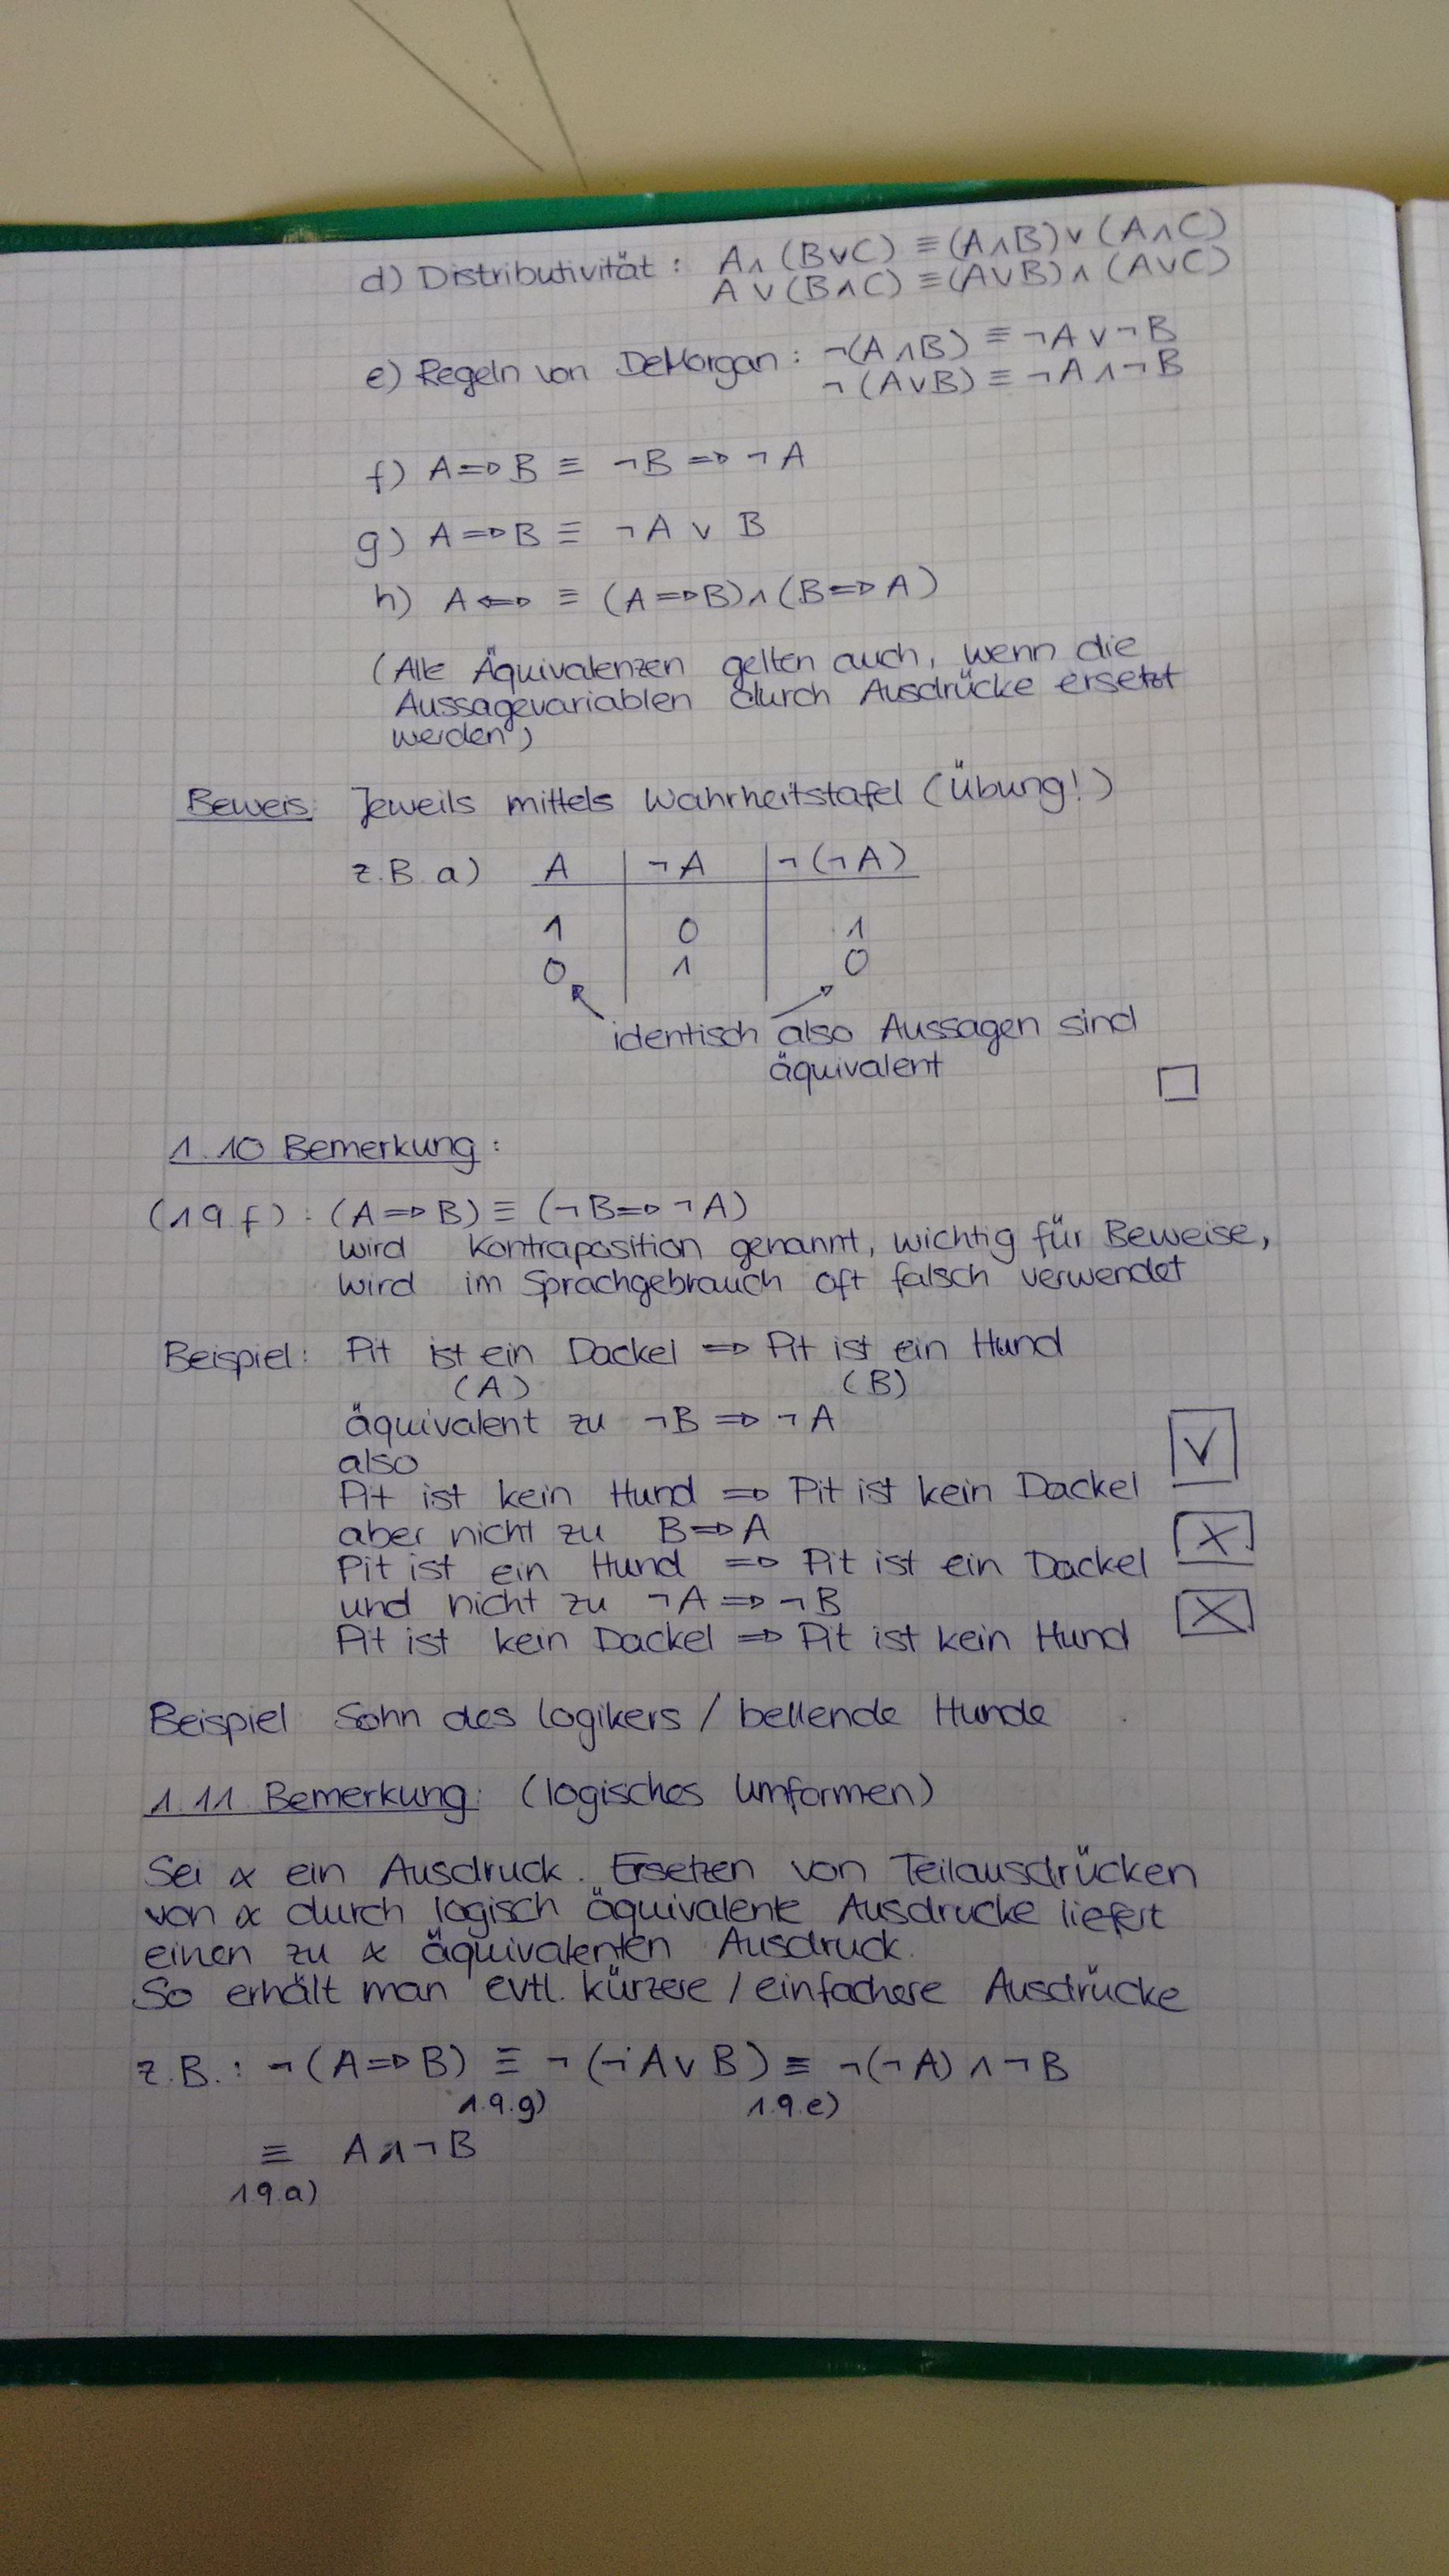 d) Distributivität : A ∧ (B ∨ C) ≡ (A ∧ B) ∨ (A ∧ C)
A ∨ (B ∧ C) ≡ (A ∨ B) ∧ (A ∨ C)
e) Regeln von DeMorgan : ¬(A ∧ B) ≡ ¬A ∨ ¬B
¬(A ∨ B) ≡ ¬A ∧ ¬B
f) A ⇒ B ≡ ¬B ⇒ ¬A
g) A ⇒ B ≡ ¬A ∨ B
h) A ⇔ ≡ (A ⇒ B) ∧ (B ⇒ A)
(Alle Äquivalenzen gelten auch, wenn die
Aussagevariablen durch Ausdrücke ersetzt
werden)
Beweis: Jeweils mittels Wahrheitstafel (Übung!)
z.B. a) A | ¬A | ¬(¬A)
1 | 0 | 1
0 | 1 | 0
identisch also Aussagen sind
äquivalent
1.10 Bemerkung :
(1.9.f) : (A ⇒ B) ≡ (¬B ⇒ ¬A)
wird Kontraposition genannt, wichtig für Beweise,
wird im Sprachgebrauch oft falsch verwendet
Beispiel : Pit ist ein Dackel ⇒ Pit ist ein Hund
(A) (B)
äquivalent zu ¬B ⇒ ¬A
also
Pit ist kein Hund ⇒ Pit ist kein Dackel ✓
aber nicht zu B ⇒ A
Pit ist ein Hund ⇒ Pit ist ein Dackel X
und nicht zu ¬A ⇒ ¬B
Pit ist kein Dackel ⇒ Pit ist kein Hund X
Beispiel Sohn des Logikers / bellende Hunde
1.11 Bemerkung: (logisches Umformen)
Sei α ein Ausdruck. Ersetzen von Teilausdrücken
von α durch logisch äquivalente Ausdrucke liefert
einen zu α äquivalenten Ausdruck.
So erhält man evtl. kürzere / einfachere Ausdrücke
z.B. : ¬(A ⇒ B) ≡ ¬(¬A ∨ B) ≡ ¬(¬A) ∧ ¬B
1.9.g) 1.9.e)
≡ A ∧ ¬B
1.9.a)